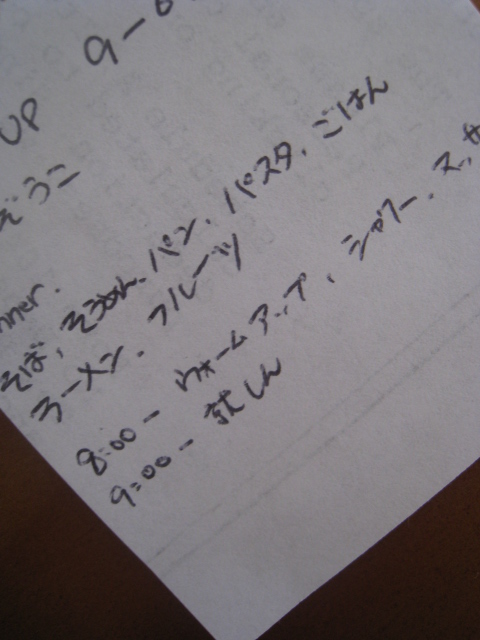 9-
UP
ぞうこ
nner.
そば、そうめん、パン、パスタ、ごはん
ラーメン、フルーツ
8:00- ウォームアップ、シャワー、
9:00- 就しん